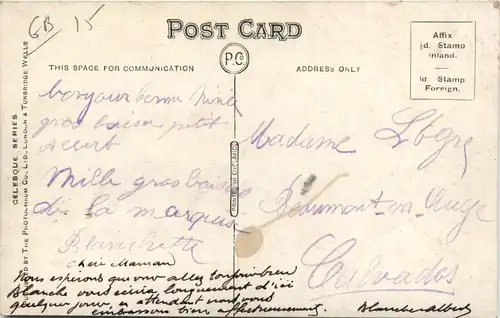 GB 15
POST CARD
Affix
½d. Stamp
Inland.
1d. Stamp
Foreign.
THIS SPACE FOR COMMUNICATION
P.C.
ADDRESS ONLY
CELESQUE SERIES
PUBLISHED BY THE PHOTOCHROM CO., LTD., LONDON & TUNBRIDGE WELLS
bonjour bonne Nina
gros baiser petit
Mille gros baisers
de la marquise
Blanchette
Madame
Beaumont-en-Auge
Calvados
Cheir Maman
Nous espérons que vous allez toujours bien
Blanche vous écrira longuement d'ici
quelque jours, en attendant nous vous
embrassons bien affectueusement.
Blanche Albert